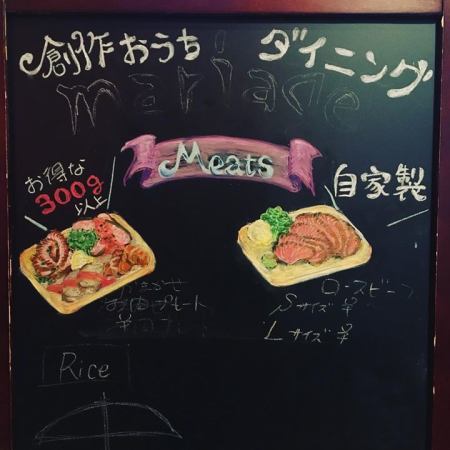 創作おうち ダイニング
mariage
Meats
お得な
300g
以上
自家製
ローストビーフ
Sサイズ ¥
Lサイズ ¥
お肉プレート
Rice